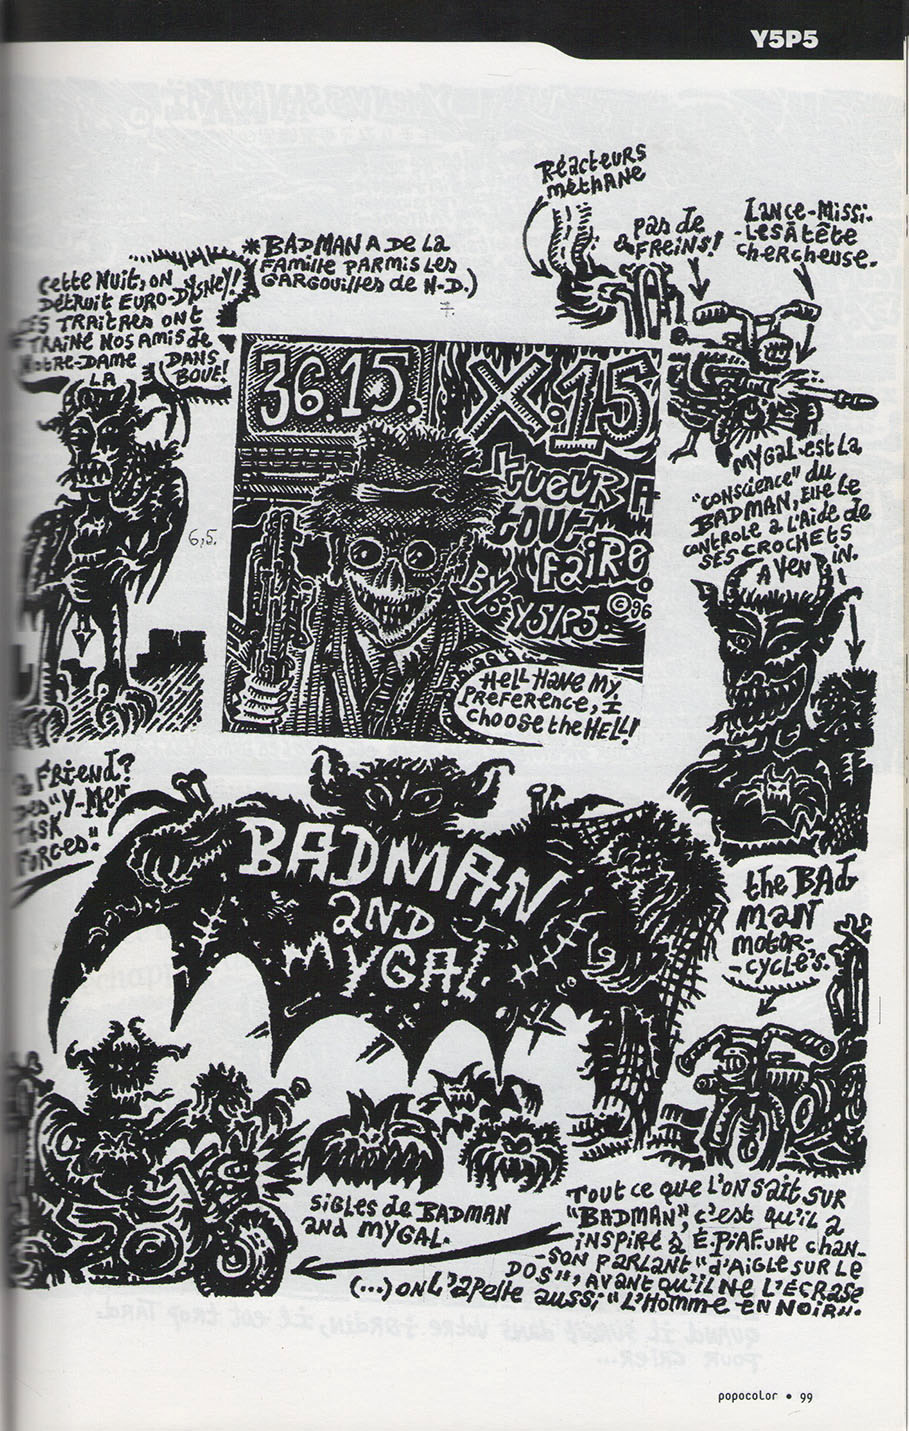 Y5P5
Réacteurs
méthane
pas de
FREINS!
Lance-Missi-
-LES à tête
chercheuse.
* BADMAN A DE LA
FAMILLE PARMIS LES
GARGOUILLES de N-D.)
Cette NUIT, ON
Détruit EURO-DISNEY!
TRAITRES ONT
TRAÎNÉ NOS AMIS de
NOTRE-DAME DANS
LA BOUE!
36.15.
X.15
tueur A
tout
faire.
BY Y5/P5. ©96
HELL HAVE My
PREFERENCE, I
choose the HELL!
6,5.
7.
MYGAL est LA
"conscience" du
BADMAN, Elle Le
CONTROLE à L'Aide de
SES CROCHETS
A VENIN.
FRIEND?
DES "Y-Men
TASK
FORCES."
BADMAN
AND
MYGAL
the BAD
MAN
motor-
-cycle's.
SIGLES de BADMAN
AND MYGAL.
TOUT ce que L'ON SAIT SUR
"BADMAN", c'est qu'il a
INSPIRÉ à E.PIAF UNE CHAN-
-SON PARLANT "d'AIGLE SUR LE
DOS", AVANT QU'IL NE L'ÉCRASE
(...) ON L'apelle aussi; "L'Homme EN NOIR".
QUAND il SURGIT dans votre JARDIN, il est trop TARD.
POUR CRIER...
popocolor • 99